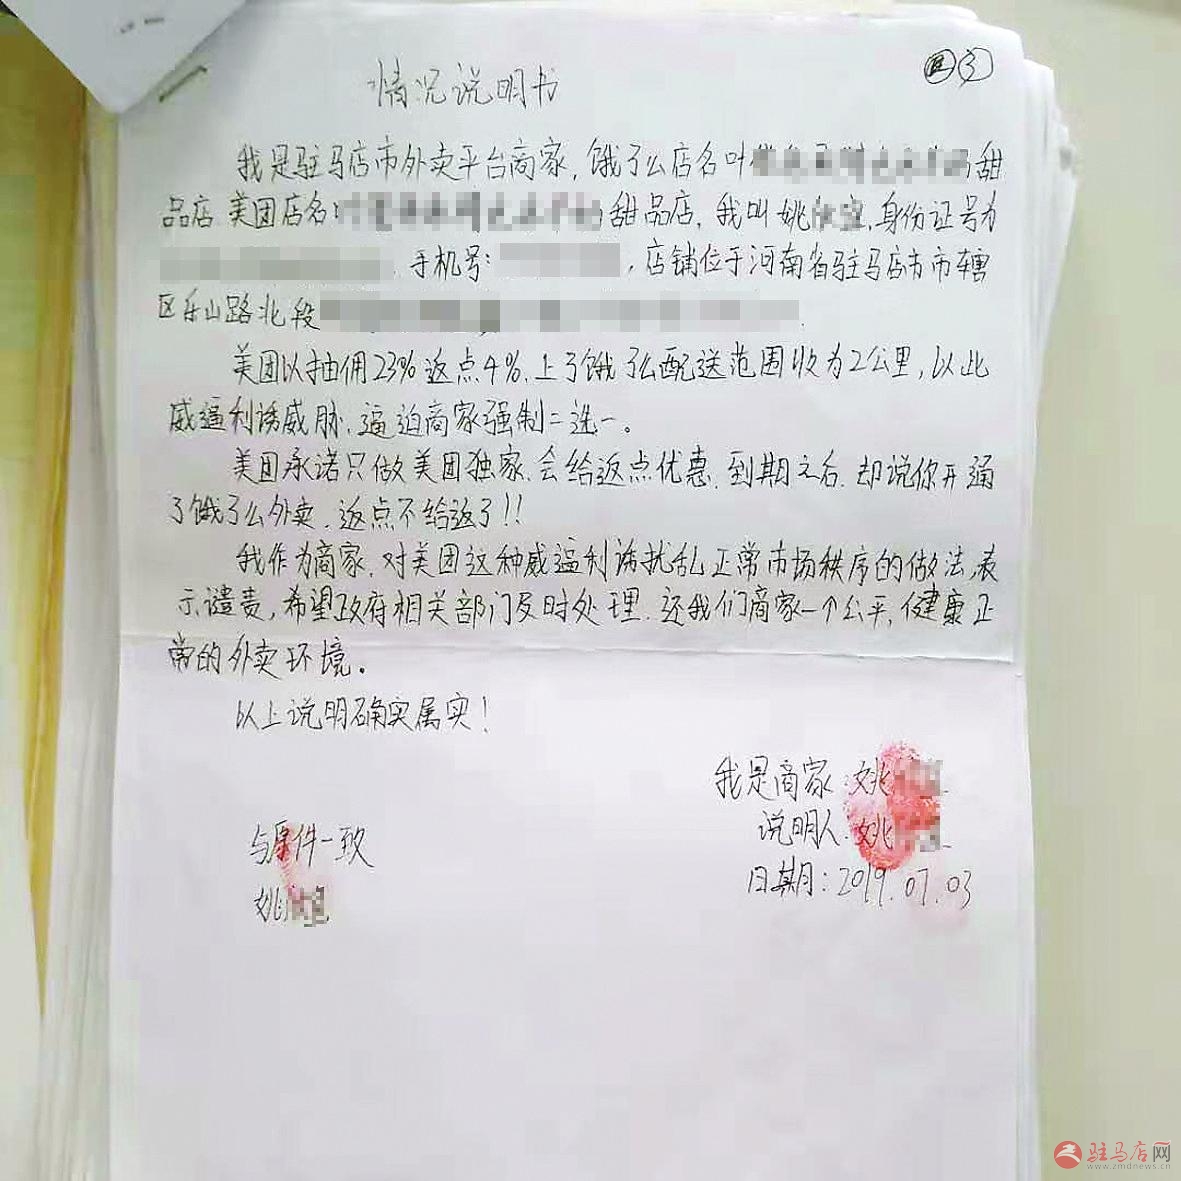 情况说明书
③
我是驻马店市外卖平台商家，饿了么店名叫 甜
品店.美团店名叫 甜品店，我叫姚 ，身份证号为
，手机号： ，店铺位于河南省驻马店市市辖
区乐山路北段
美团以抽佣23%返点4%，上了饿了么配送范围收为2公里，以此
威逼利诱威胁，逼迫商家强制二选一。
美团承诺只做美团独家，会给返点优惠，到期之后，却说你开通
了饿了么外卖，返点不给返了!!
我作为商家，对美团这种威逼利诱扰乱正常市场秩序的做法，表
示谴责，希望政府相关部门及时处理，还我们商家一个公平，健康正
常的外卖环境。
以上说明确实属实！
我是商家：姚
说明人：姚
日期：2019.07.03
与原件一致
姚
驻马店网
www.zmdnews.cn